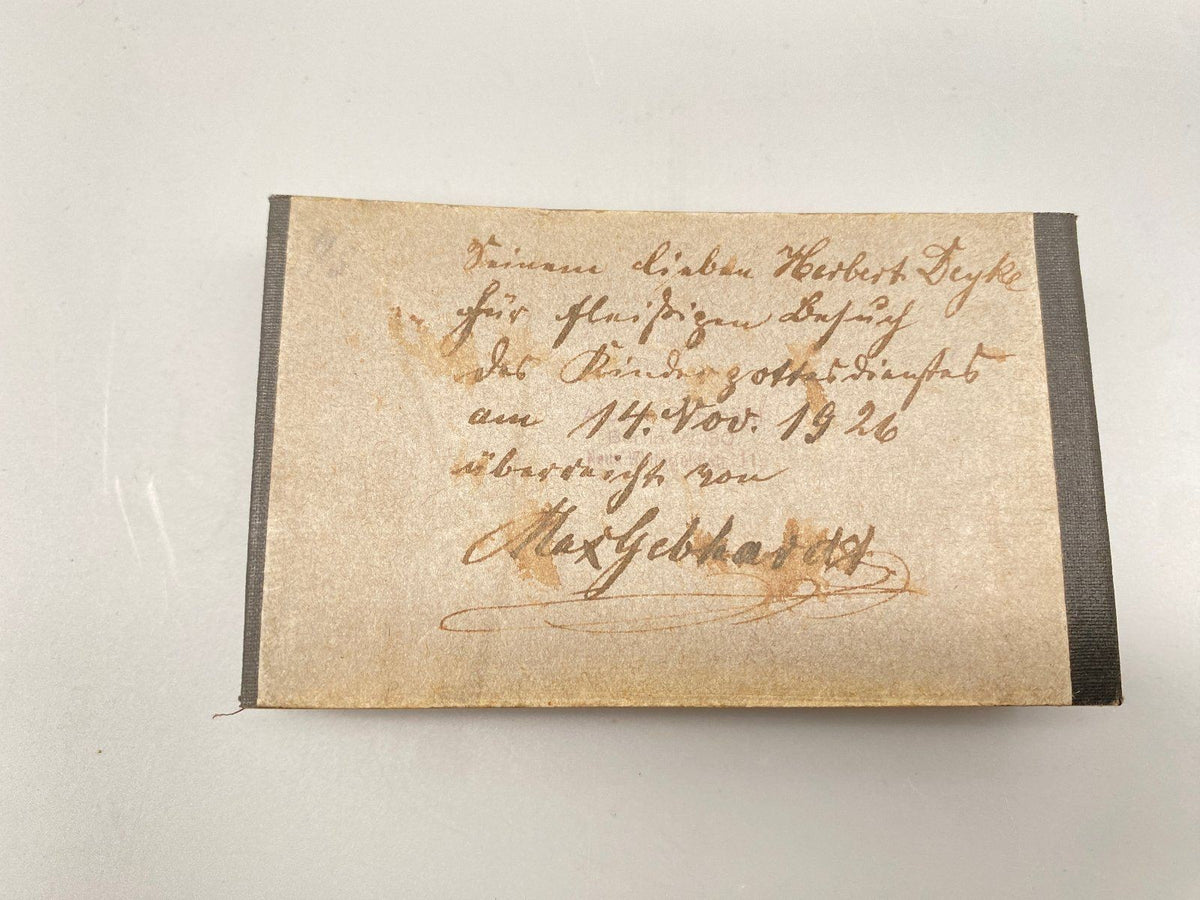 Seinem lieben Herbert Deyke
für fleißigen Besuch
des Kindergottesdienstes
am 14. Nov. 1926
überreicht von
Max Gebhardt